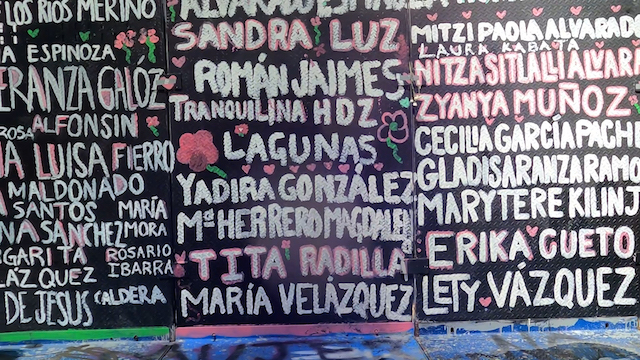 DE LOS RIOS MERINO
ESPINOZA
GALOZ
ROSA
ALFONSIN
LUISA FIERRO
MALDONADO
SANTOS MARÍA
SANCHEZ MORA
ROSARIO
IBARRA
DE JESUS CALDERA
ALVARADO
SANDRA LUZ
ROMÁN JAIMES
TRANQUILINA HDZ
LAGUNAS
YADIRA GONZÁLEZ
Mª HERRERO MAGDALEN
TITA RADILLA
MARÍA VELÁZQUEZ
MITZI PAOLA ALVARADO
LAURA KABATA
NITZA SITLALLI ALVARA
ZYANYA MUÑOZ
CECILIA GARCÍA PACH
GLADIS ARANZA RAMO
MARY TERE KILINJ
ERIKA CUETO
LETY VÁZQUEZ